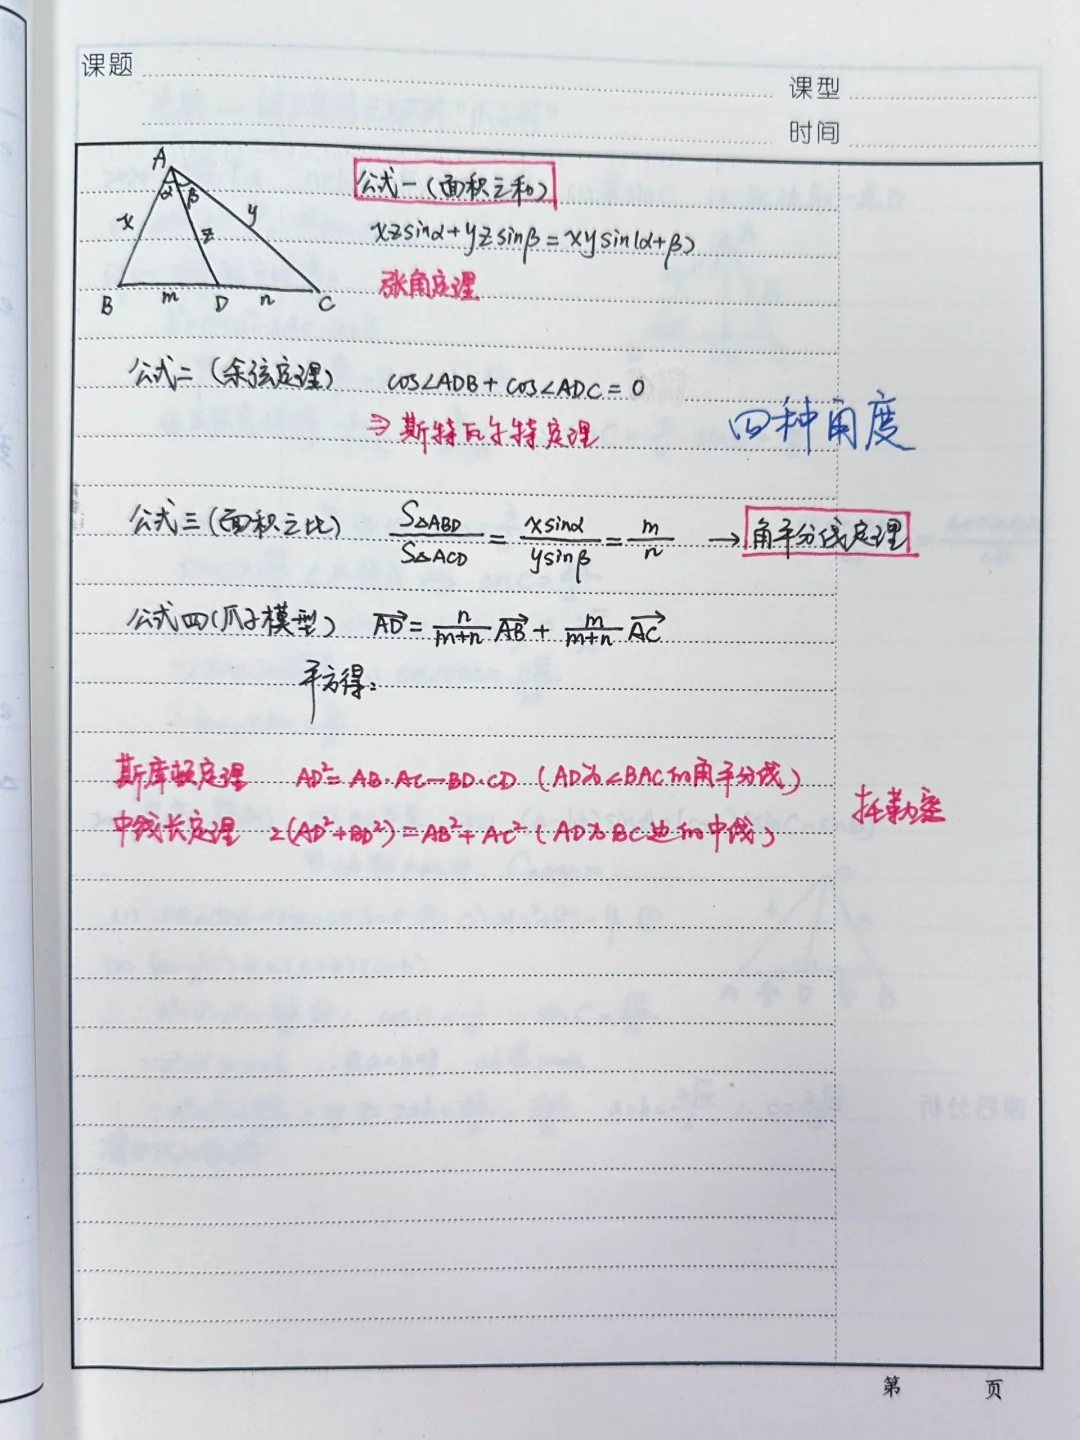 课题
课型
时间
A
α β
x
y
z
B m D n C
公式一(面积之和)
xzsinα+yzsinβ=xysin(α+β)
张角定理
公式二(余弦定理) cos∠ADB+cos∠ADC=0
⇒斯特瓦尔特定理
四种角度
公式三(面积之比) S△ABD/S△ACD=xsinα/ysinβ=m/n →角平分线定理
公式四(爪子模型) \overrightarrow{AD}=n/(m+n)\overrightarrow{AB}+m/(m+n)\overrightarrow{AC}
平方得:
斯库顿定理 AD²=AB·AC-BD·CD(AD为∠BAC的角平分线)
中线长定理 2(AD²+BD²)=AB²+AC²(AD为BC边的中线)
托勒定
第 页